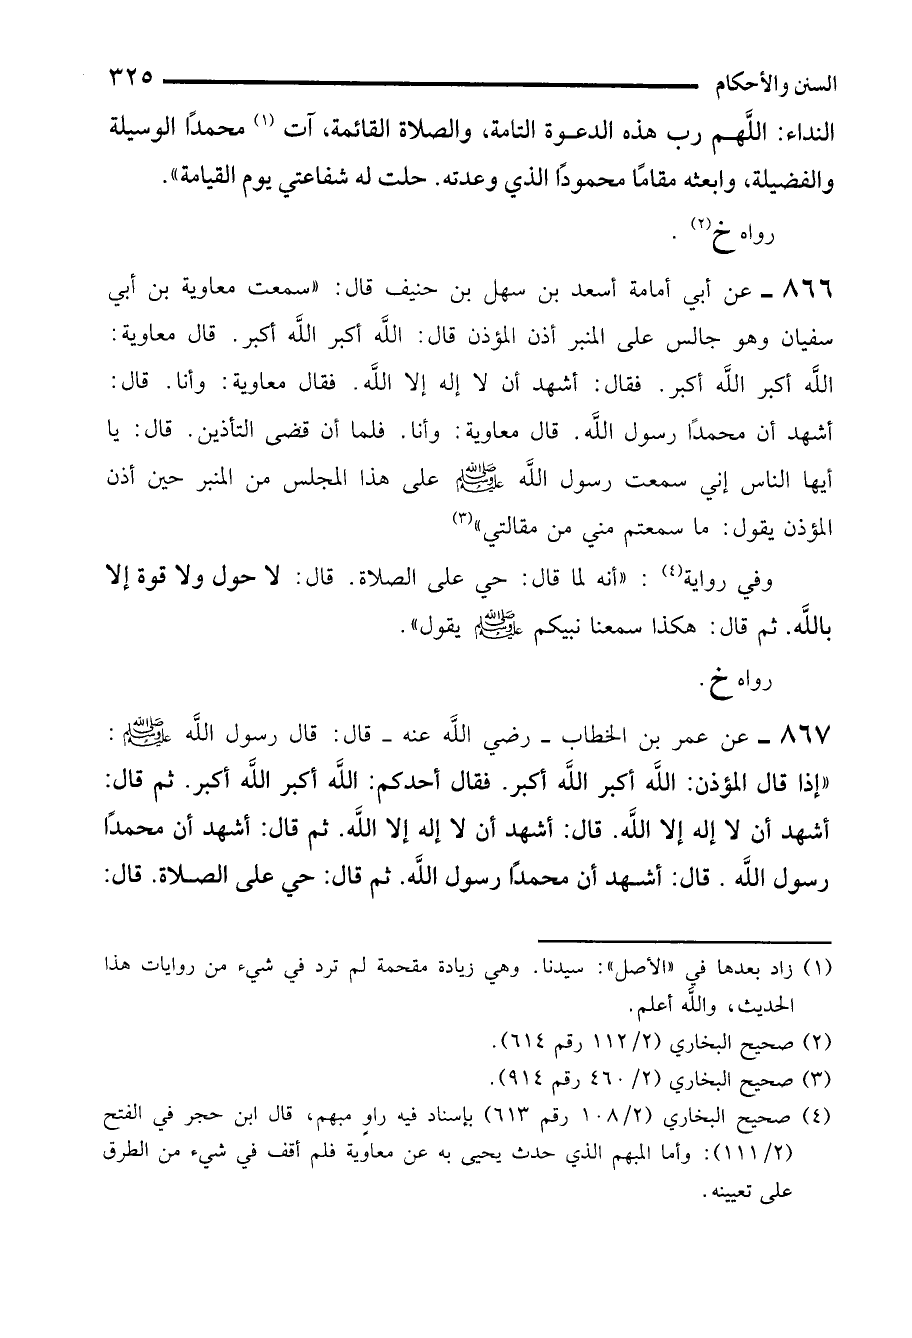 السنن والأحكام ٣٢٥
النداء: اللَّهـم رب هذه الدعـوة التامة، والصلاة القائمة، آت (١) محمدًا الوسيلة
والفضيلة، وابعثه مقامًا محمودًا الذي وعدته. حلت له شفاعتي يوم القيامة».
رواه خ(٢) .
٨٦٦ ـ عن أبي أمامة أسعد بن سهل بن حنيف قال: «سمعت معاوية بن أبي
سفيان وهو جالس على المنبر أذن المؤذن قال: اللَّه أكبر اللَّه أكبر. قال معاوية:
اللَّه أكبر اللَّه أكبر. فقال: أشهد أن لا إله إلا اللَّه. فقال معاوية: وأنا. قال:
أشهد أن محمدًا رسول اللَّه. قال معاوية: وأنا. فلما أن قضى التأذين. قال: يا
أيها الناس إني سمعت رسول اللَّه ﷺ على هذا المجلس من المنبر حين أذن
المؤذن يقول: ما سمعتم مني من مقالتي»(٣)
وفي رواية(٤) : «أنه لما قال: حي على الصلاة. قال: لا حول ولا قوة إلا
باللَّه. ثم قال: هكذا سمعنا نبيكم ﷺ يقول».
رواه خ.
٨٦٧ ـ عن عمر بن الخطاب ـ رضي اللَّه عنه ـ قال: قال رسول اللَّه ﷺ :
«إذا قال المؤذن: اللَّه أكبر اللَّه أكبر. فقال أحدكم: اللَّه أكبر اللَّه أكبر. ثم قال:
أشهد أن لا إله إلا اللَّه. قال: أشهد أن لا إله إلا اللَّه. ثم قال: أشهد أن محمدًا
رسول اللَّه . قال: أشـهد أن محمدًا رسول اللَّه. ثم قال: حي على الصـلاة. قال:
(١) زاد بعدها في «الأصل»: سيدنا. وهي زيادة مقحمة لم ترد في شيء من روايات هذا
الحديث، واللَّه أعلم.
(٢) صحيح البخاري (٢/ ١١٢ رقم ٦١٤).
(٣) صحيح البخاري (٢/ ٤٦٠ رقم ٩١٤).
(٤) صحيح البخاري (٢/ ١٠٨ رقم ٦١٣) بإسناد فيه راوٍ مبهم، قال ابن حجر في الفتح
(٢/ ١١١): وأما المبهم الذي حدث يحيى به عن معاوية فلم أقف في شيء من الطرق
على تعيينه.